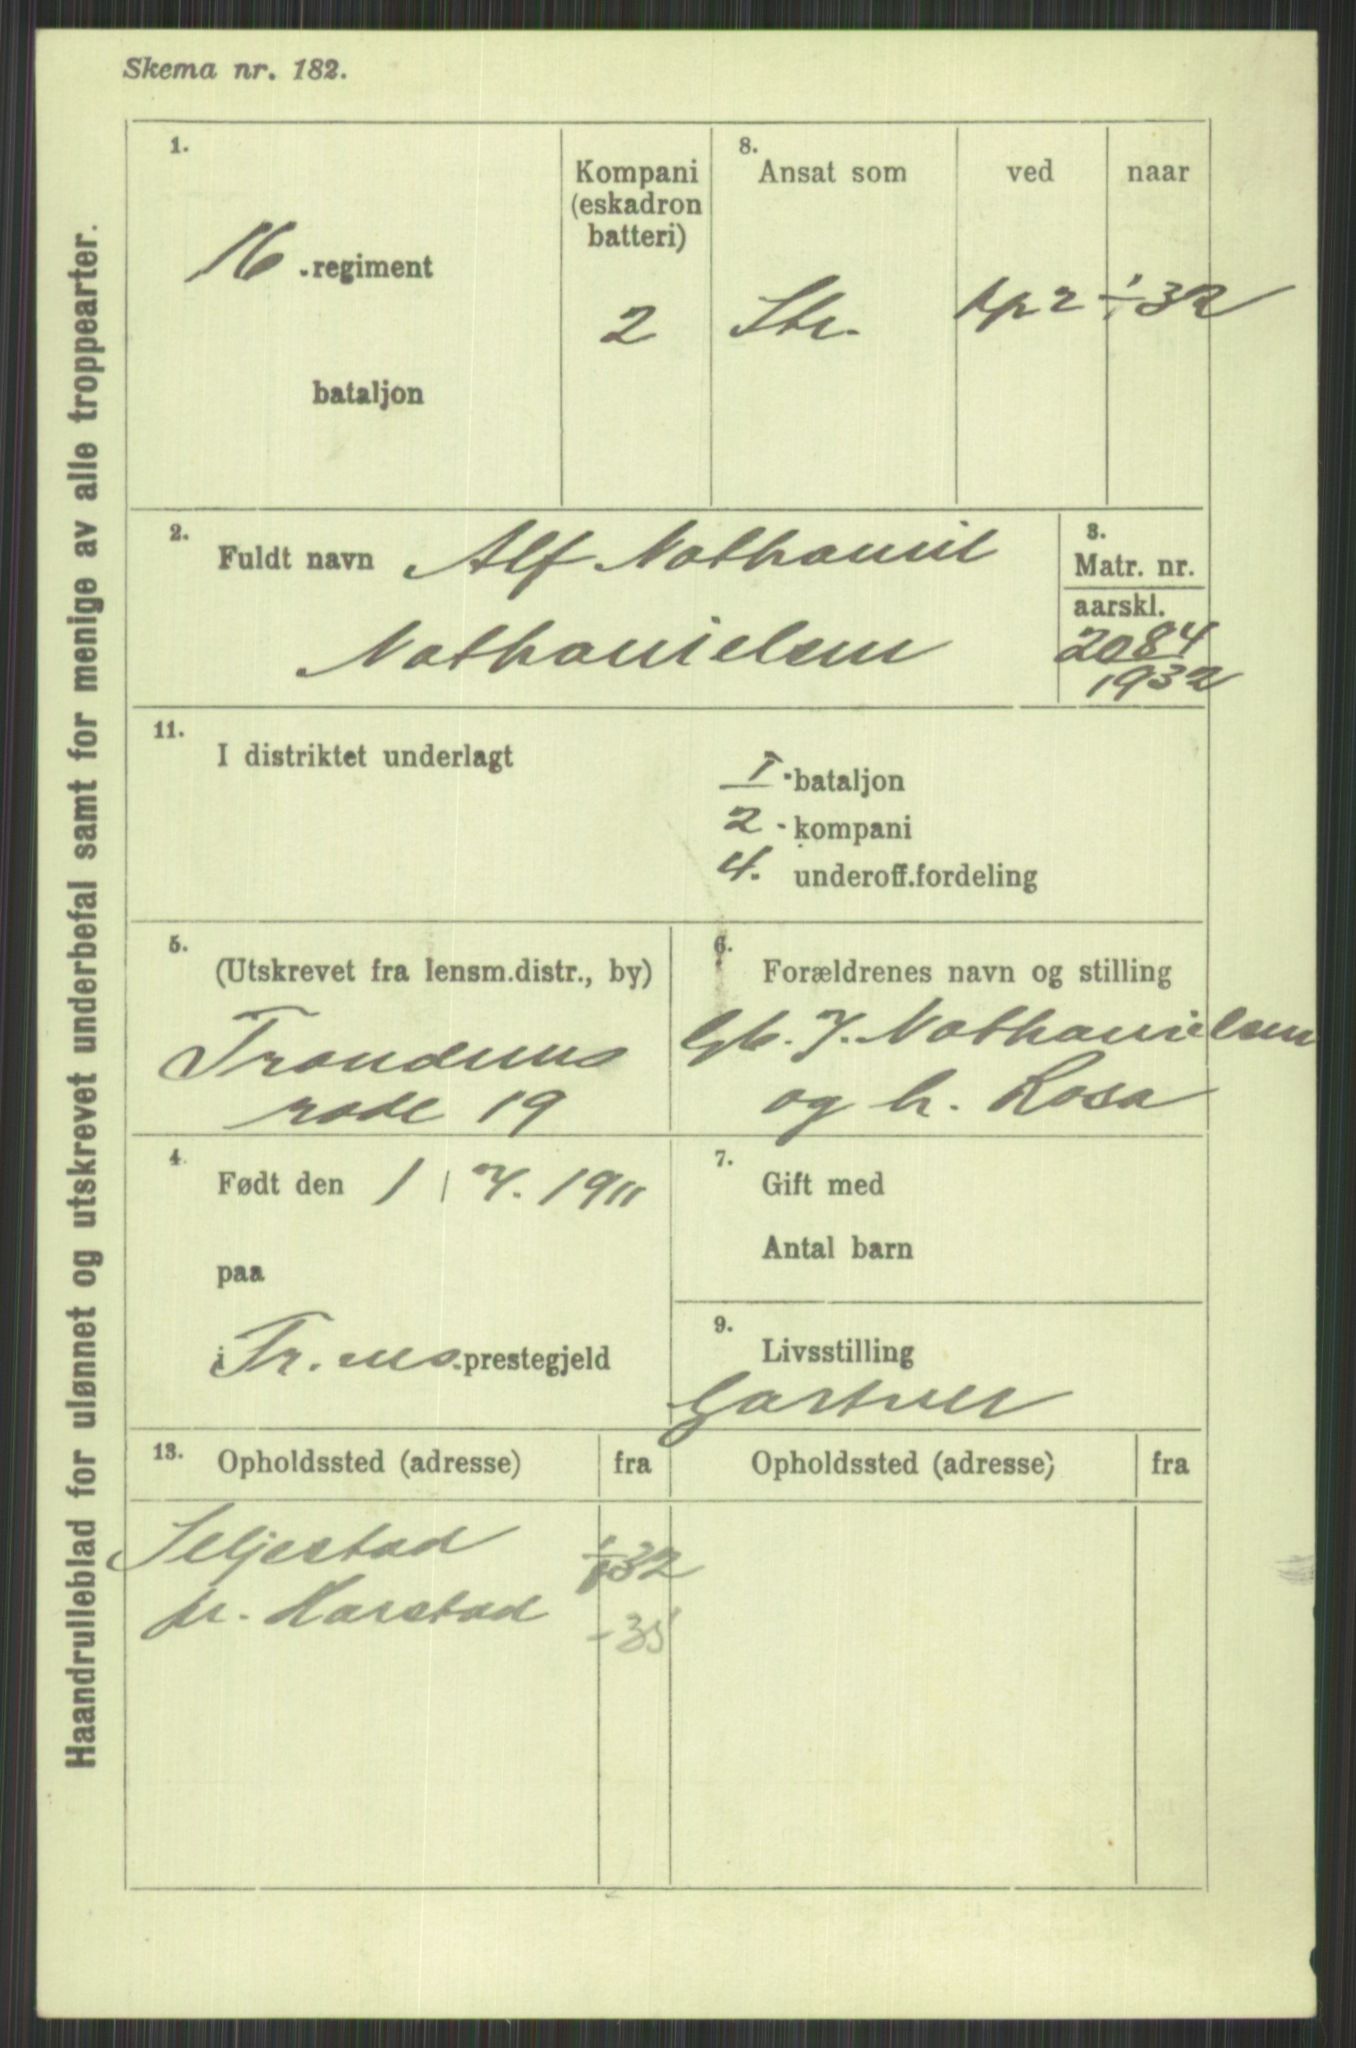 Skema nr. 182.
Haandrulleblad for ulønnet og utskrevet underbefal samt for menige av alle troppearter.
1.
16 .regiment
bataljon
Kompani
(eskadron
batteri)
2
8.
Ansat som
Str.
ved
kp 2
naar
1/1 32
2.
Fuldt navn Alf Nathaniel
Nathanielsen
3.
Matr. nr.
aarskl.
2084
1932
11.
I distriktet underlagt
I. bataljon
2 - kompani
4. underoff.fordeling
5.
(Utskrevet fra lensm.distr., by)
Trondenes
rode 19
6.
Forældrenes navn og stilling
Gb. J. Nathanielsen
og h. Rosa
4.
Født den 1 / 7. 1911
paa
i Tr.enes.prestegjeld
7.
Gift med
Antal barn
9.
Livsstilling
Gartner
13.
Opholdssted (adresse) fra
Opholdssted (adresse) fra
Seljestad
pr. Harstad
32
- 35